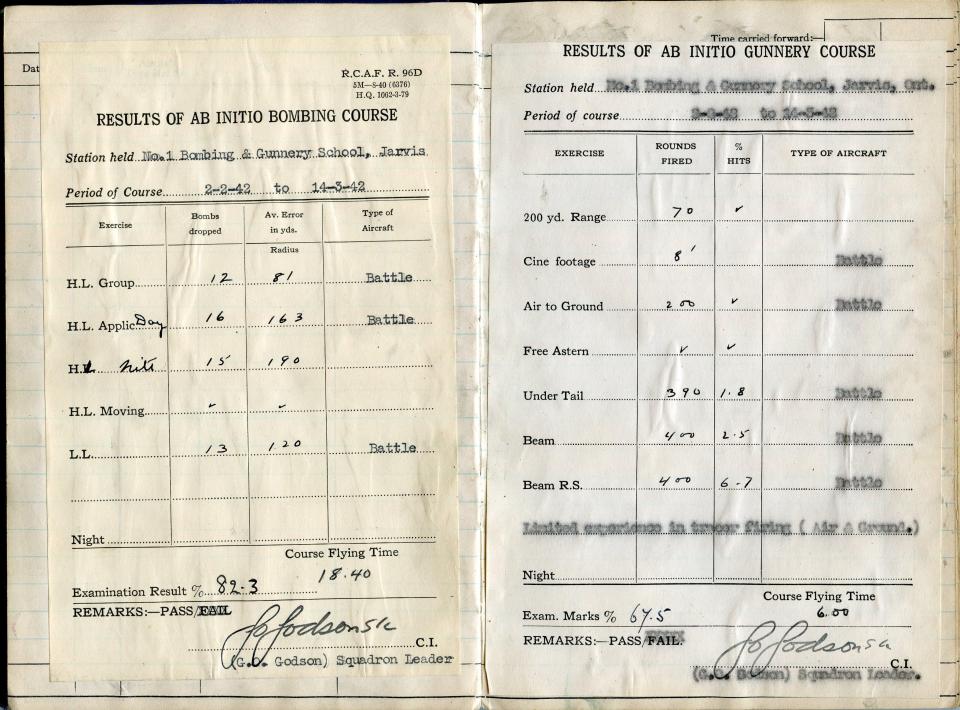 Dat
R.C.A.F. R. 96D
5M—8-40 (6376)
H.Q. 1062-3-79
RESULTS OF AB INITIO BOMBING COURSE
Station held No.1 Bombing & Gunnery School, Jarvis
Period of Course 2-2-42 to 14-3-42
Exercise Bombs dropped Av. Error in yds. Type of Aircraft
Radius
H.L. Group 12 81 Battle
H.L. Applic Day 16 163 Battle
H.L. Nite 15 190
H.L. Moving ✓ ✓
L.L. 13 120 Battle
Night
Course Flying Time
18.40
Examination Result % 82.3
REMARKS:—PASS/FAIL
C.I.
(G.C. Godson) Squadron Leader
Time carried forward:—
RESULTS OF AB INITIO GUNNERY COURSE
Station held No.1 Bombing & Gunnery School, Jarvis, Ont.
Period of course 2-2-42 to 14-3-42
EXERCISE ROUNDS FIRED % HITS TYPE OF AIRCRAFT
200 yd. Range 70 ✓
Cine footage 8' Battle
Air to Ground 200 ✓ Battle
Free Astern ✓ ✓
Under Tail 390 1.8 Battle
Beam 400 2.5 Battle
Beam R.S. 400 6.7 Battle
Limited experience in tracer firing ( Air & Ground.)
Night
Course Flying Time
6.00
Exam. Marks % 67.5
REMARKS:—PASS/FAIL.
C.I.
(G.C. Godson) Squadron Leader.